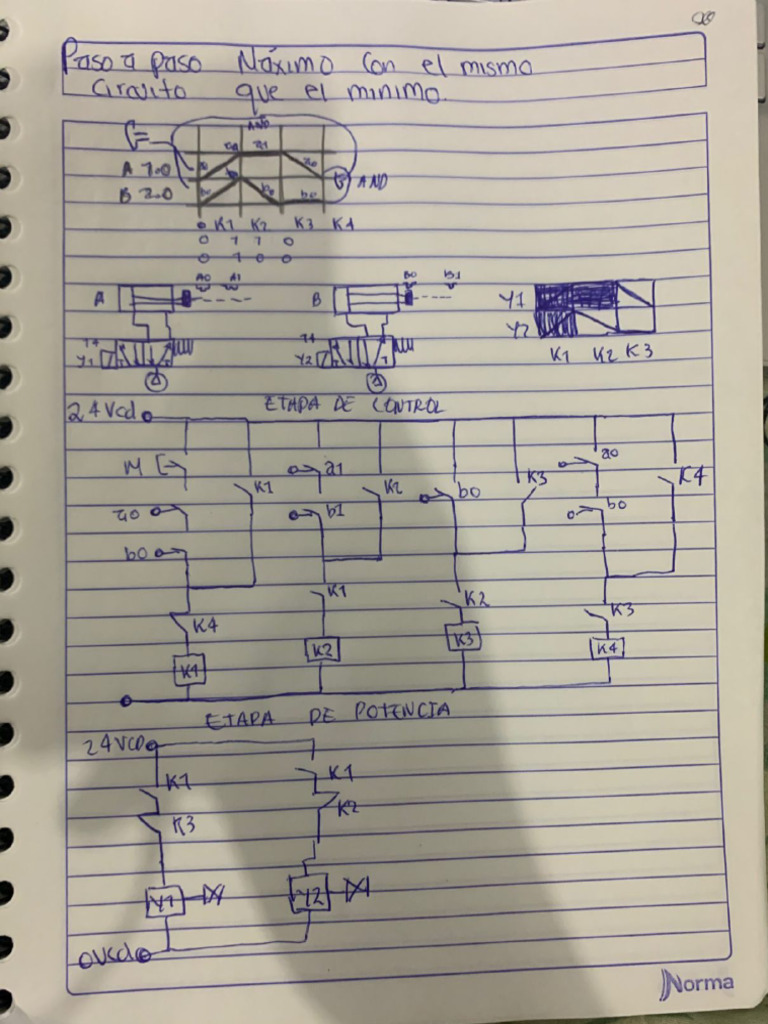 Paso a paso Máximo con el mismo
Circuito que el minimo.
AND
a1 a1
A 1.0 a0 a0
B 2.0 b0 b0 b0 AND
0 K1 K2 K3 K4
0 1 1 0
0 1 0 0
A0 A1 B0 B1
A B Y1
Y2
14 14
Y1 Y2 K1 K2 K3
ETAPA DE CONTROL
24Vcd
M a1 a0 K4
K1 K2 b0 K3
a0 b1 b0
b0
K4 K1 K2 K3
K1 K2 K3 K4
ETAPA DE POTENCIA
24VCD
K1 K1
K3 K2
Y1 Y2
0Vcd
Norma